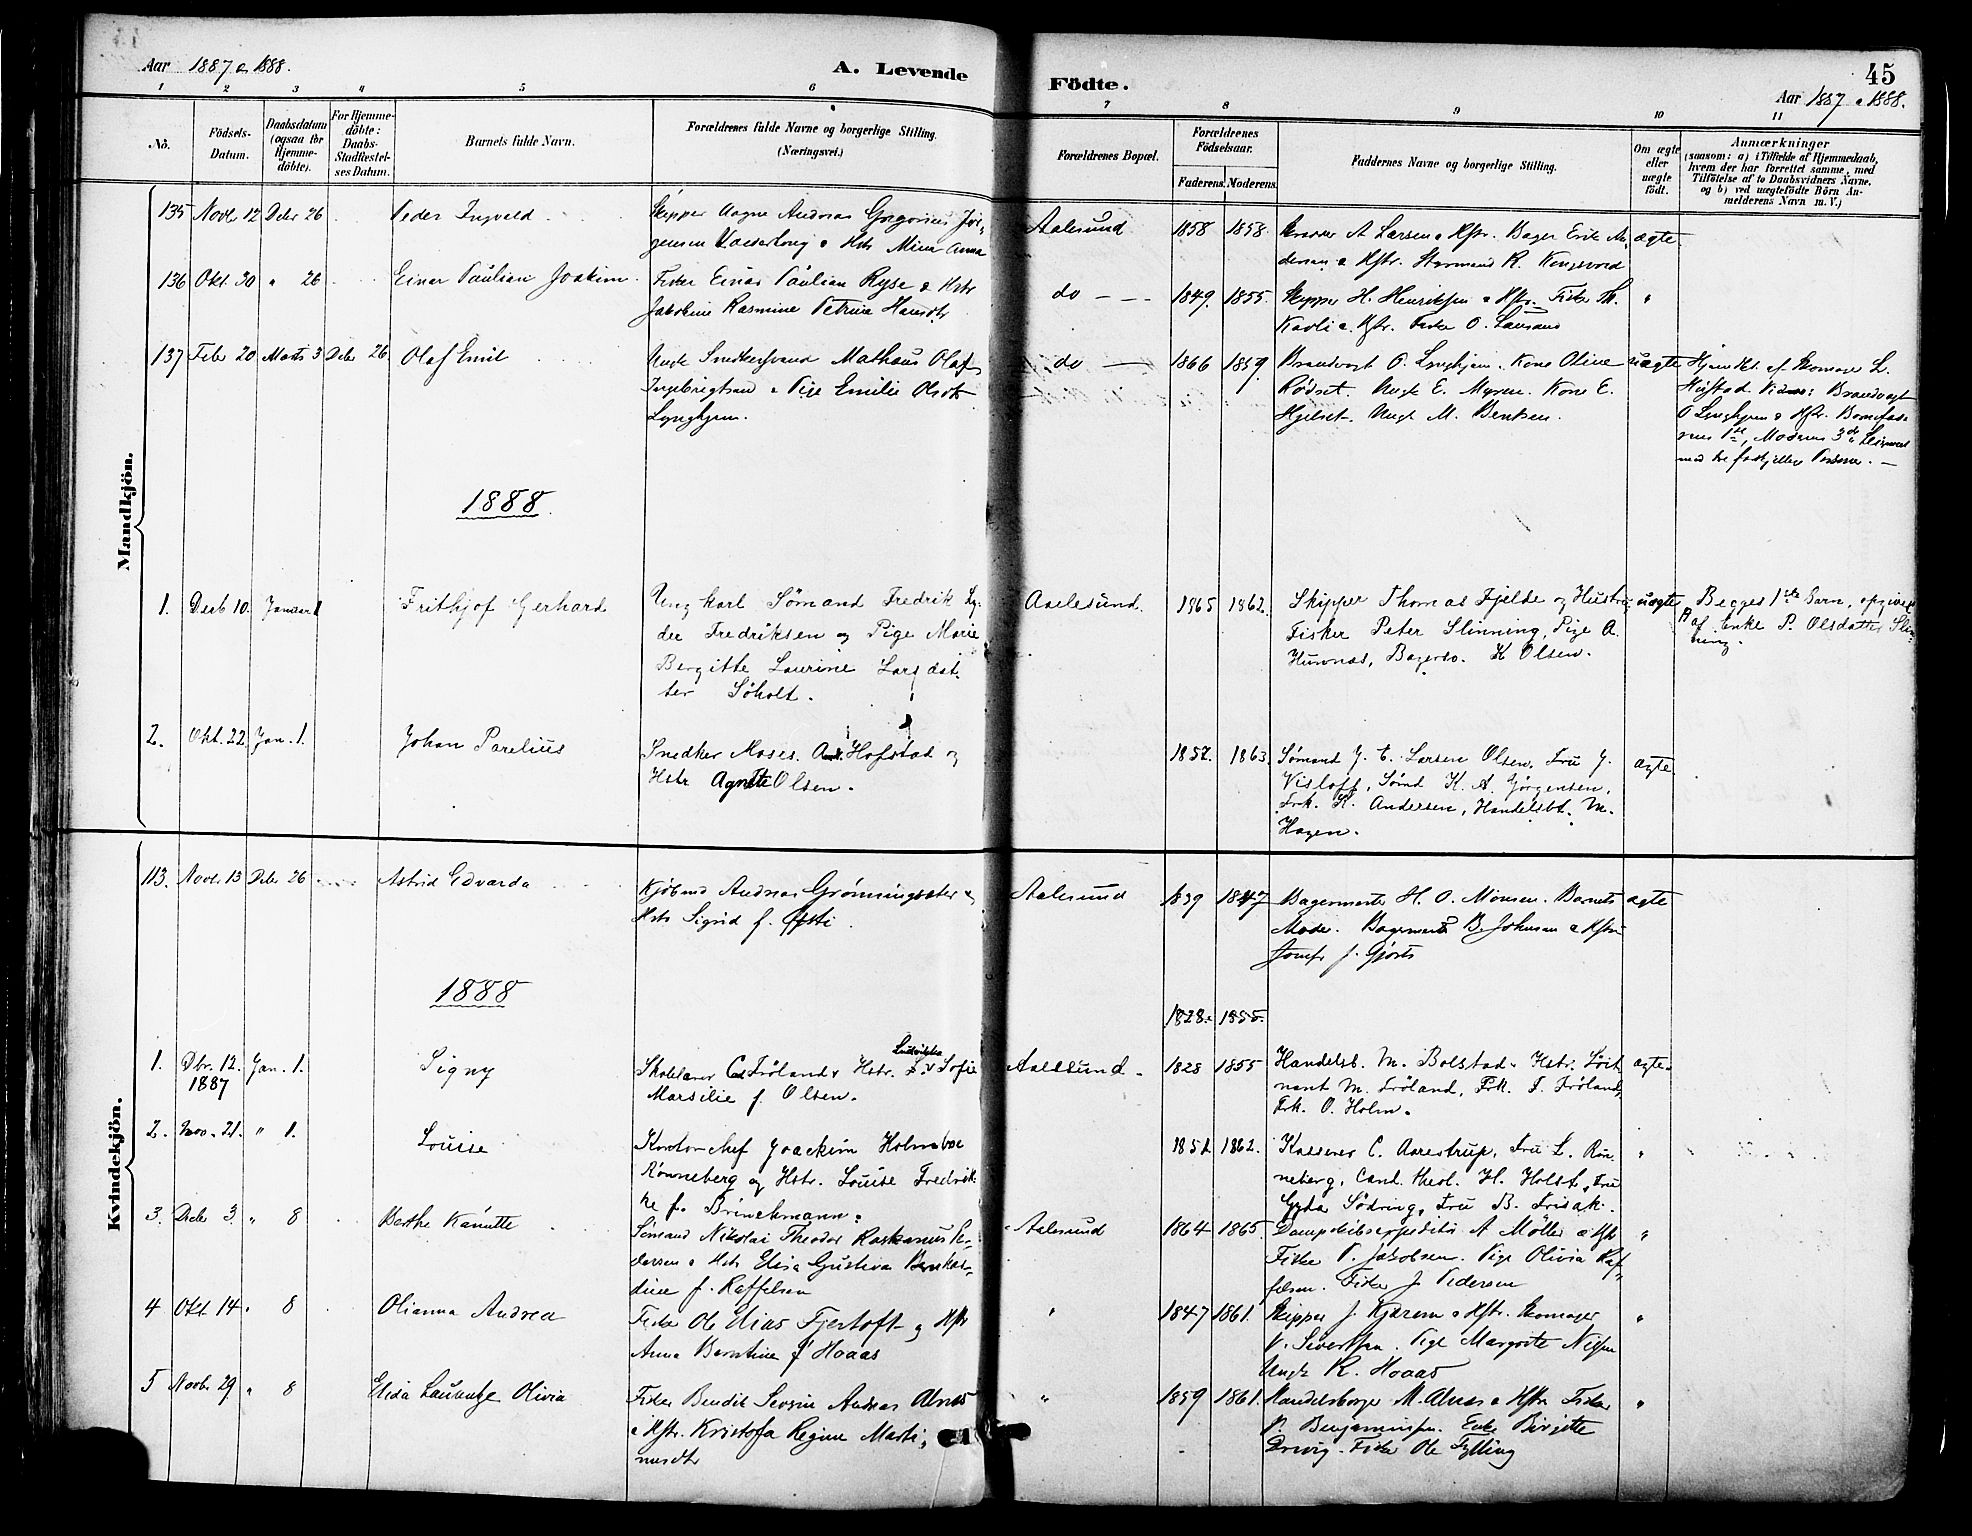 Aar 1887 & 1888.
A. Levende
Födte.
45
Aar 1887 & 1888.
1 2 3 4 5 6 7 8 9 10 11
No.
Födsels-Datum.
Daabsdatum (ogsaa for Hjemme-döbte).
For Hjemme-döbte: Daabs-Stadfæstel-ses Datum.
Barnets fulde Navn.
Forældrenes fulde Navne og borgerlige Stilling. (Næringsvei.)
Forældrenes Bopæl.
Forældrenes Födselsaar.
Faderens. Moderens.
Faddernes Navne og borgerlige Stilling.
Om ægte eller uægte födt.
Anmærkninger
(saasom: a) i Tilfælde af Hjemmedaab,
hvem der har forrettet samme, med
Tilföielse af to Daabsvidners Navne,
og b) ved uægtefödte Börn An-
melderens Navn m. V.)
Mandkjön.
135 Novb 12 Debr 26 Peder Ingvald Skipper Aagne Andreas Gregorius Jör-
gensen & Hstr Mina Anna
Aalesund 1858 1858. A Larsen & Hstr. Bager Erik An-
dersen & Hstr. Styrmand R. ægte
136 Okt. 30 " 26 Einar Paulian Joakim. Fisker Einar Paulian Ryse & Hstr
Jakobine Rasmine Petrine Hansdtr
do 1849. 1855. Skipper H. Henriksen & Hstr. Fisker Th.
Kavli & Hstr. Fisker O. "
137 Febr 20 Marts 3 Debr 26. Olaf Emil Ungk Snedkersvend Mathæus Olaf
Ingebrigtsen & Pige Emilie Olsdtr
Lynghjem.
do 1866 1859. Brandvagt O. Lynghjem. Kone Oline
Rødset. Ungk E. Myren. Kone E.
Hjelset. Ungk M. Bentsen. uægte
Hjemdbt. af Skomager L.
Hustad. Vidner: Brandvagt
O Lynghjem & Hstr. Barnefad-
rens 1ste, Moderens 3de Leiermaal
med tre forskjellige Personer. —
1888.
1. Desb 10. Januar 1 Frithjof Gerhard Ungkarl Sømand Fredrik Ly-
der Fredriksen og Pige Marie
Bergitte Laurine Larsdat-
ter Søholt.
Aalesund. 1865 1862. Skipper Thomas Fjelde og Hustr,
Fisker Peter Slinning, Pige A.
Husnæs, Bagersv. K Olsen. uægte
Begges 1ste Barn, opgivet
af Enke P. Olsdatter Slin-
ning.
2. Okt. 22. Jan. 1. Johan Parelius Snedker Moses And. Hofstad og
Hstr Agnette Olsen.
1852. 1863. Sømand J. C. Larsen Olsen, Fru J.
Visloff, Sømd K. A. Jørgensen,
Frk. K. Andersen, Handelsbt. M.
Hagen. ægte
Kvindekjön.
113. Novb. 13 Debr 26 Astrid Edvarda Kjöbmd Andreas Grönningsæter &
Hstr Sigrid f.
Aalesund 1839 1847 Bagermester H. O. Monsen. Barnets
Moder. Bagermester B. Johnsen & Hstr
Jomfr J. Gjørts ægte
1888
1828. 1855.
1. Dbr. 12. 1887 Jan. 1. Signy Skolelærer Frøland & Hstr. Ludvikka Sofie
Marsilie f. Olsen.
Aalesund. 1828 1855 Handelsb. M. Bolstad & Hstr. Løit-
nant M. Frøland, Frk. T. Frøland,
Frk. O. Holm. ægte.
2. Nov. 21. " 1. Louise Kontorchef Joackim Holmboe
Rönneberg og Hstr. Louise Fredrik-
ke f. Brinchmann.
1852 1862. Kasserer C. Aarestrup, Fru L. Rön-
neberg, Cand. theol. H. Holst, Fru
Gyda Södring, Fru B. Frisak. "
3. Debr 3. " 8 Berthe Kanutte Sömand Nikolai Theodor Raskanus Pe-
dersen & Hstr Elisa Gustiva
f. Raffelsen
Aalesund 1864 1865. Dampskibsexpeditör A Möller & Hstr
Fisker P. Jakobsen. Pige Olivia Raf-
felsen. Fisker J Pedersen "
4 Okt. 14 " 8 Olianna Andrea Fisker Ole Elias Fjertoft og Hstr
Anna Berntine f Hoaas
" 1847 1861. Skipper J. Kjærem & Hstr. Skomager
P. Sivertsen. Pige Margrete Nilsen
Ungk R. Hoaas "
5 Novbr 29 " 8 Elida Laurentze Olivia Fisker Bendik Severin Andreas Alnæs
& Hstr. Kristofa Regine Marti-
nusdtr
" 1859 1861. Handelsborger M. Alnæs & Hstr Fisker
P. Benjaminsen. Enke Birgitte
Drivig. Fisker Ole Fylling "